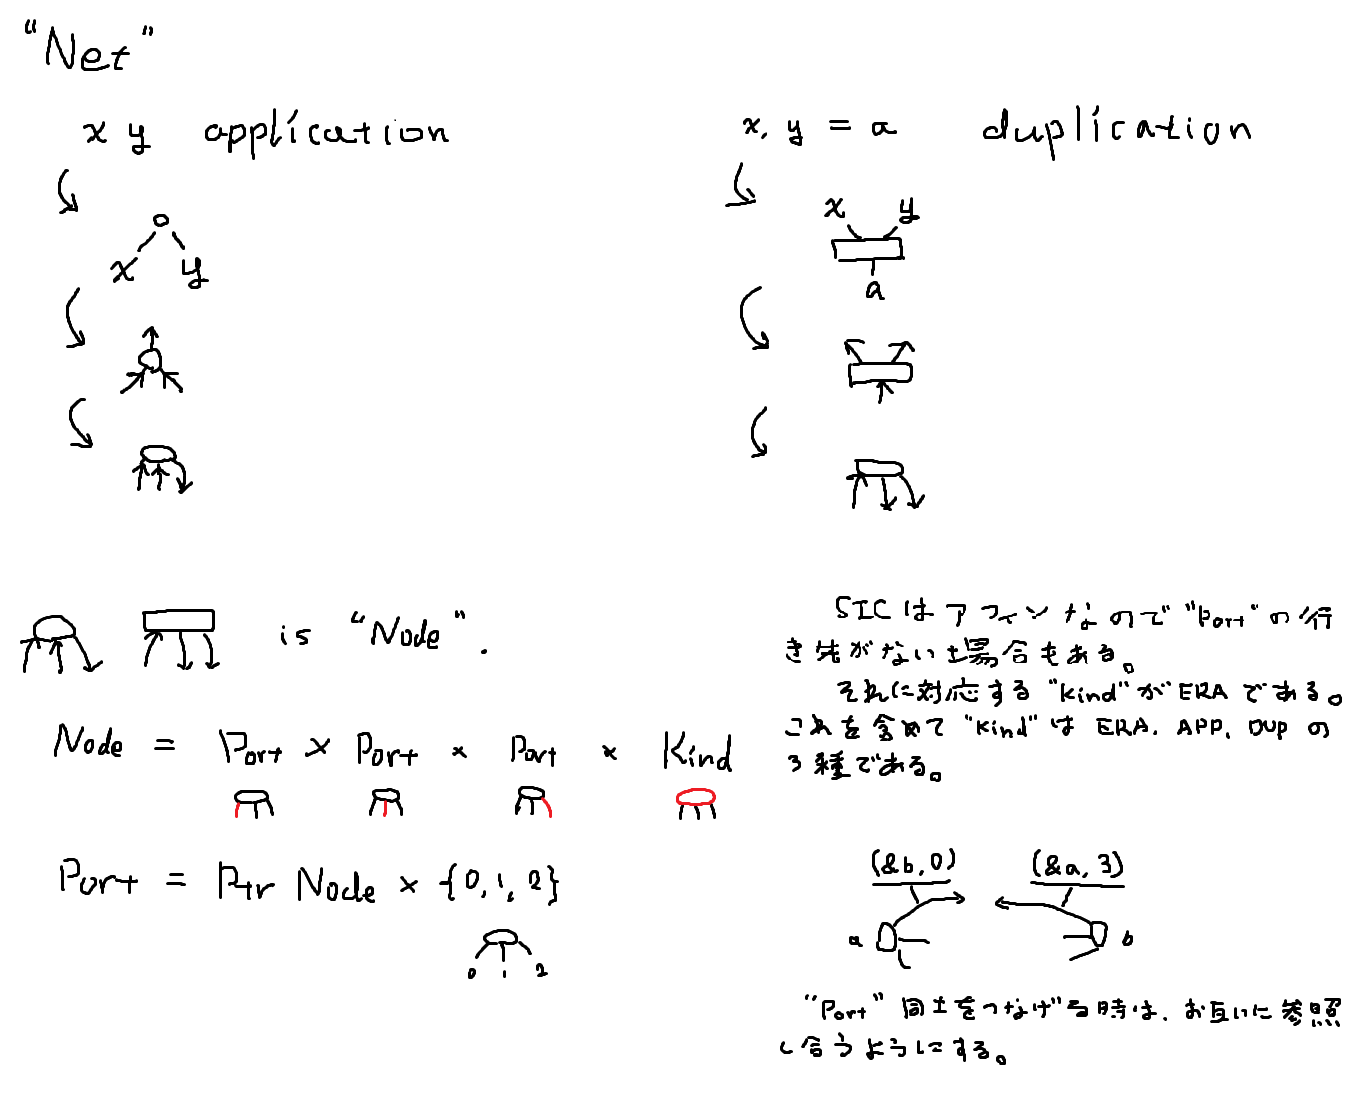 "Net"
x y application
x y
x, y = a duplication
x y
a
is "Node".
Node = Port × Port × Port × Kind
Port = Ptr Node × {0, 1, 2}
0 1 2
SICはアフィンなので"Port"の行
き先がない場合もある。
それに対応する"Kind"がERAである。
これを含めて"Kind"はERA, APP, DUPの
3種である。
(&b, 0) (&a, 3)
a b
"Port"同士をつなげる時は、お互いに参照
し合うようにする。